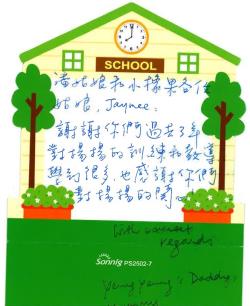 SCHOOL
潘姑娘和小橡果各位
姑娘, Jaynee:
謝謝你們過去3年
對揚揚的訓練和教導
學到很多,也感謝你們
對揚揚的關心
With warmest
regards
Sonnig PS2502-7
Yeung Yeung's Daddy,